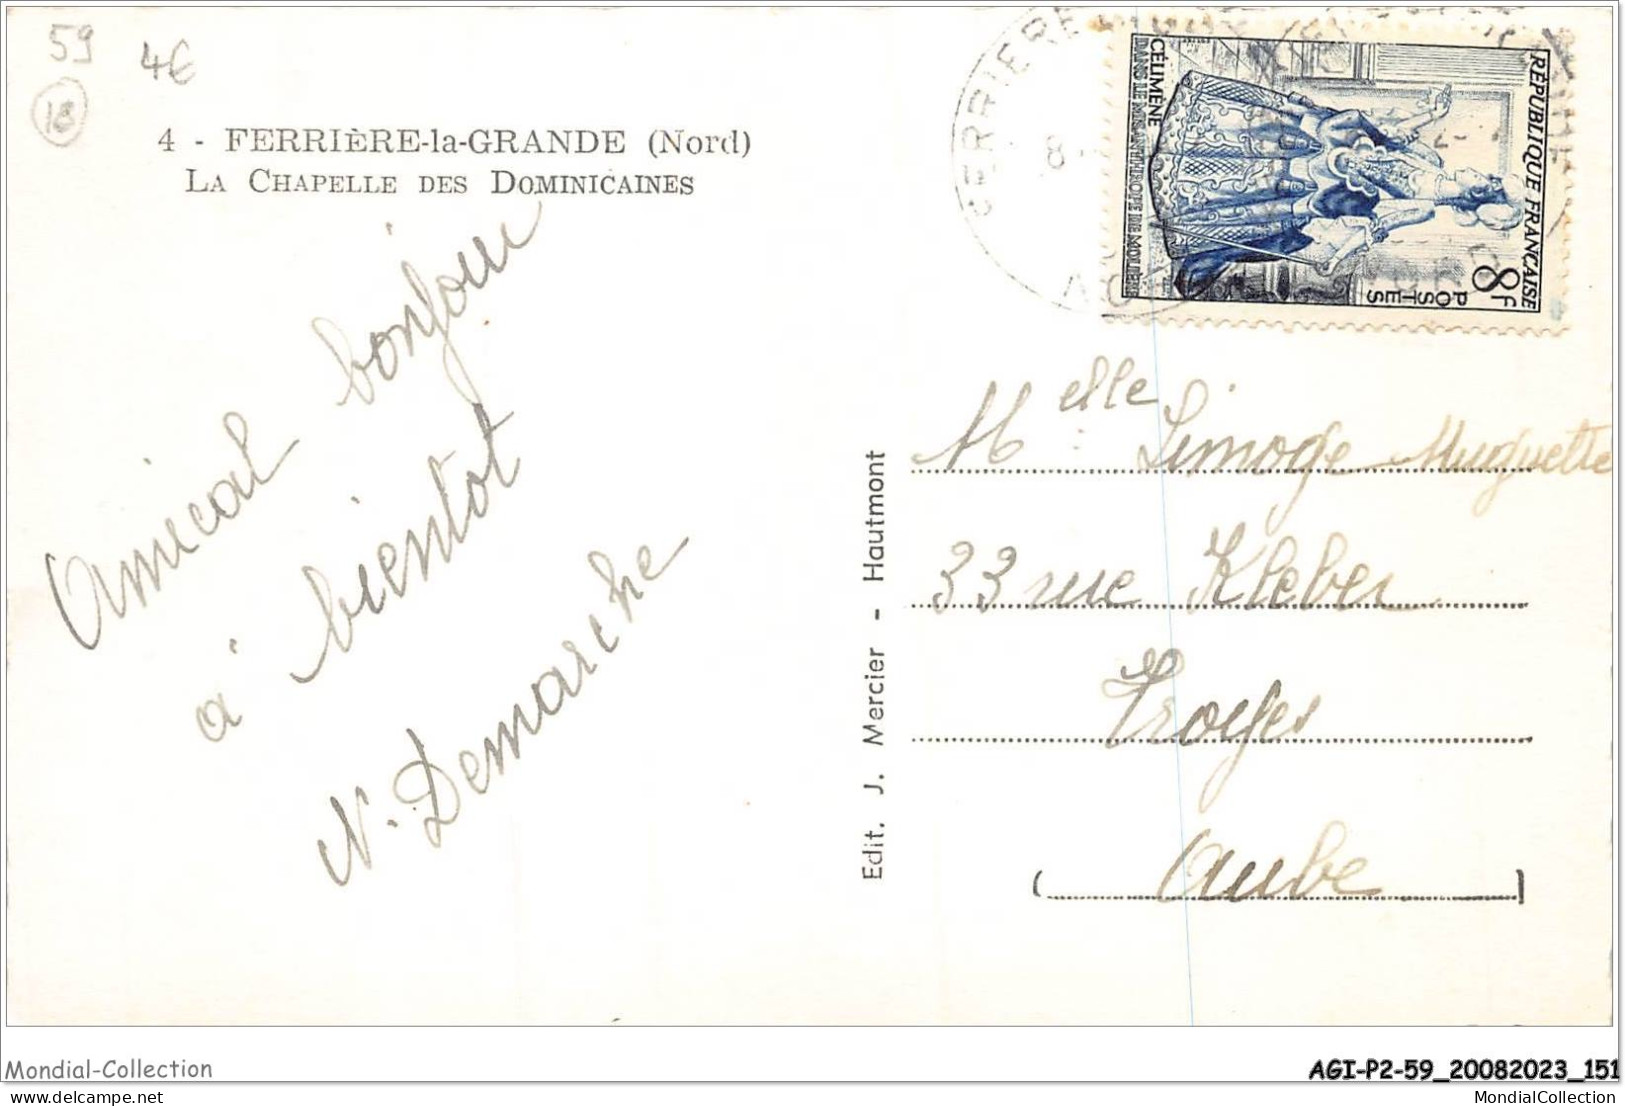 59
4€
18
4 - FERRIÈRE-la-GRANDE (Nord)
LA CHAPELLE DES DOMINICAINES
Amical bonjour
à bientot
N. Demarche
Edit. J. Mercier - Hautmont
FERRIERE
8
RÉPUBLIQUE FRANÇAISE
8F
POSTES
CÉLIMÈNE
DANS LE MISANTHROPE DE MOLIÈRE
Melle Limoge Muguette
33 rue Kleber
Troyes
(Aube)
Mondial-Collection
AGI-P2-59_20082023_151
MondialCollection